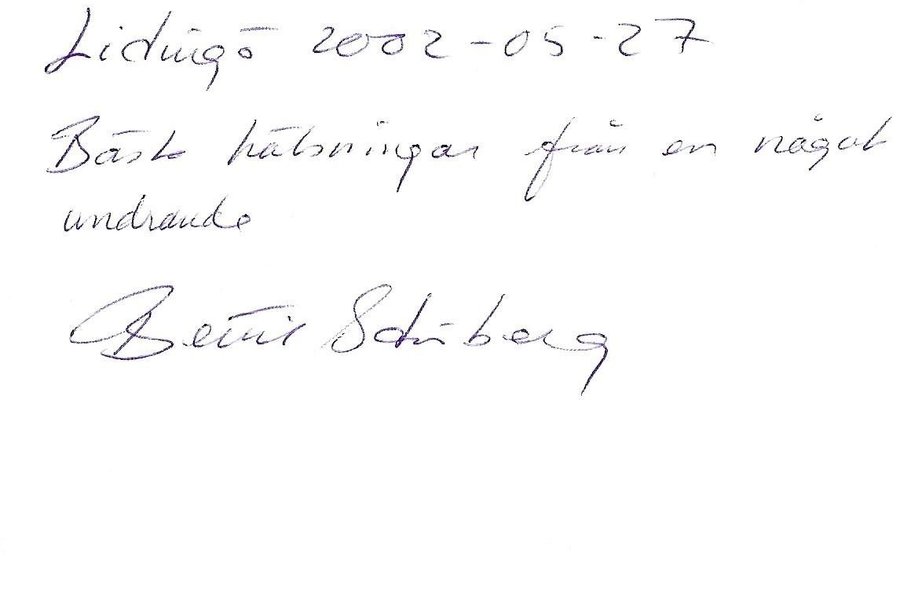 Lidingö 2002-05-27
Bästa hälsningar från en något
undrande